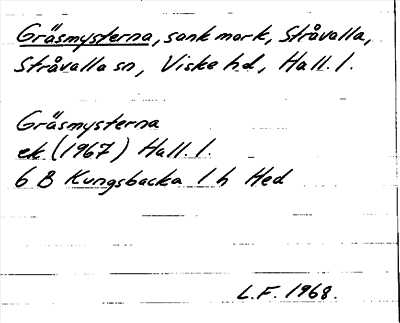 Gräsmysterna, sank mark, Stråvalla,
Stråvalla sn, Viske hd, Hall. l.
Gräsmysterna
ek (1967) Hall. l.
6 B Kungsbacka 1 h Hed
L.F. 1968.